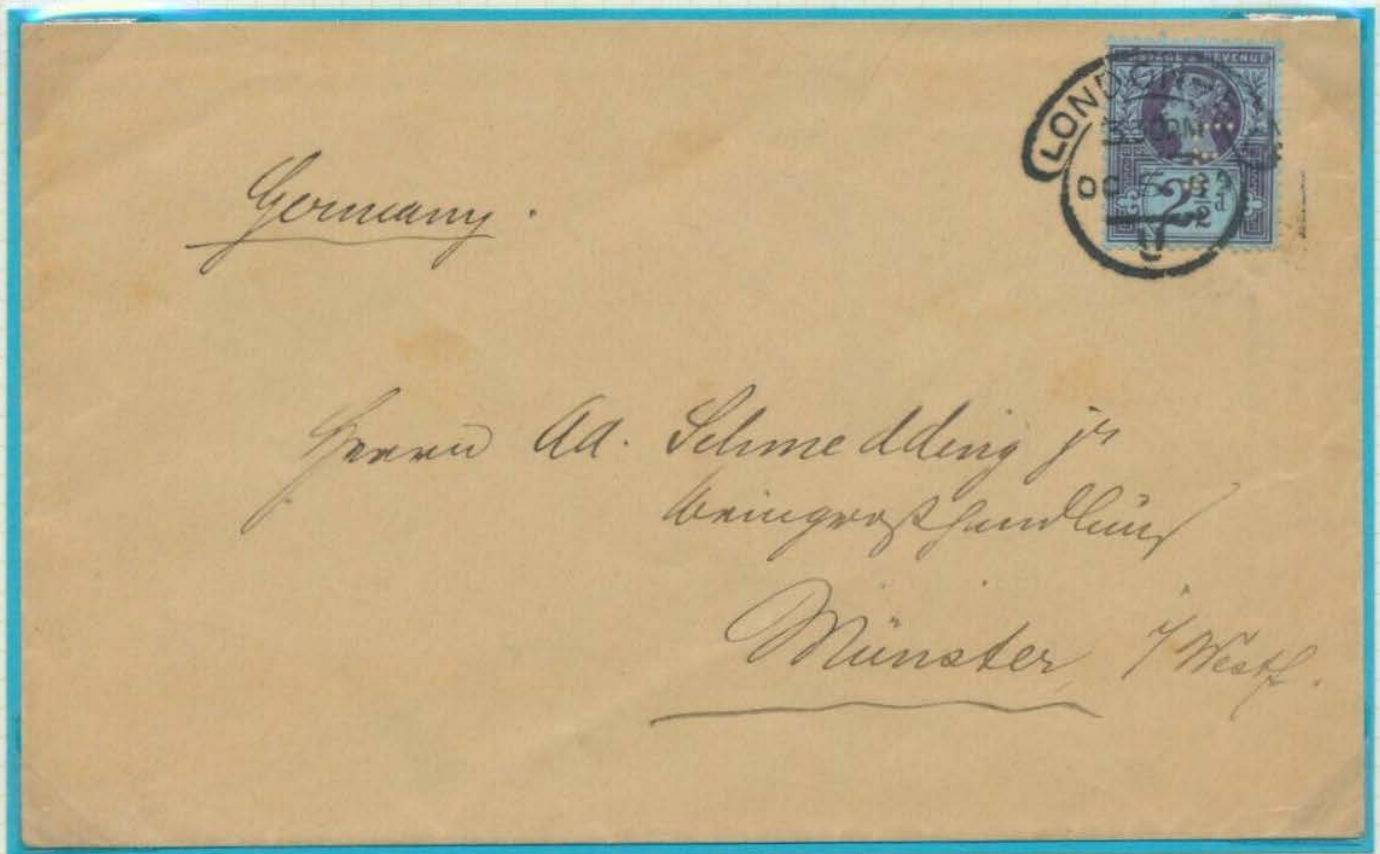 POSTAGE & REVENUE
LONDON
OC 5
2½d
11
Germany.
Herrn Ad. Schmedding jr
Weingroßhandlung
Münster i/Westf.